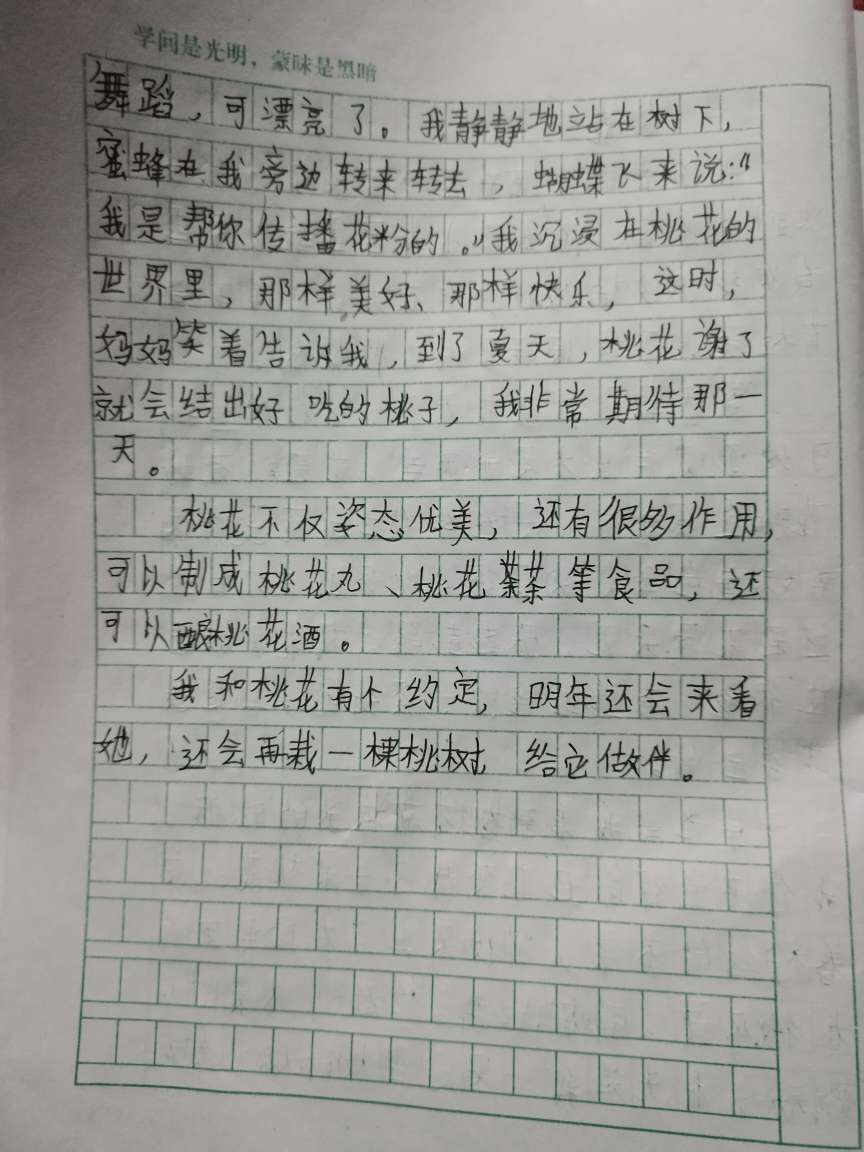 学问是光明，蒙昧是黑暗
舞蹈，可漂亮了。我静静地站在树下，
蜜蜂在我旁边转来转去，蝴蝶飞来说：“
我是帮你传播花粉的。”我沉浸在桃花的
世界里，那样美好、那样快乐，这时，
妈妈笑着告诉我，到了夏天，桃花谢了
就会结出好吃的桃子，我非常期待那一
天。
桃花不仅姿态优美，还有很多作用，
可以制成桃花丸、桃花茶等食品，还
可以酿桃花酒。
我和桃花有个约定，明年还会来看
她，还会再栽一棵桃树，给它做伴。